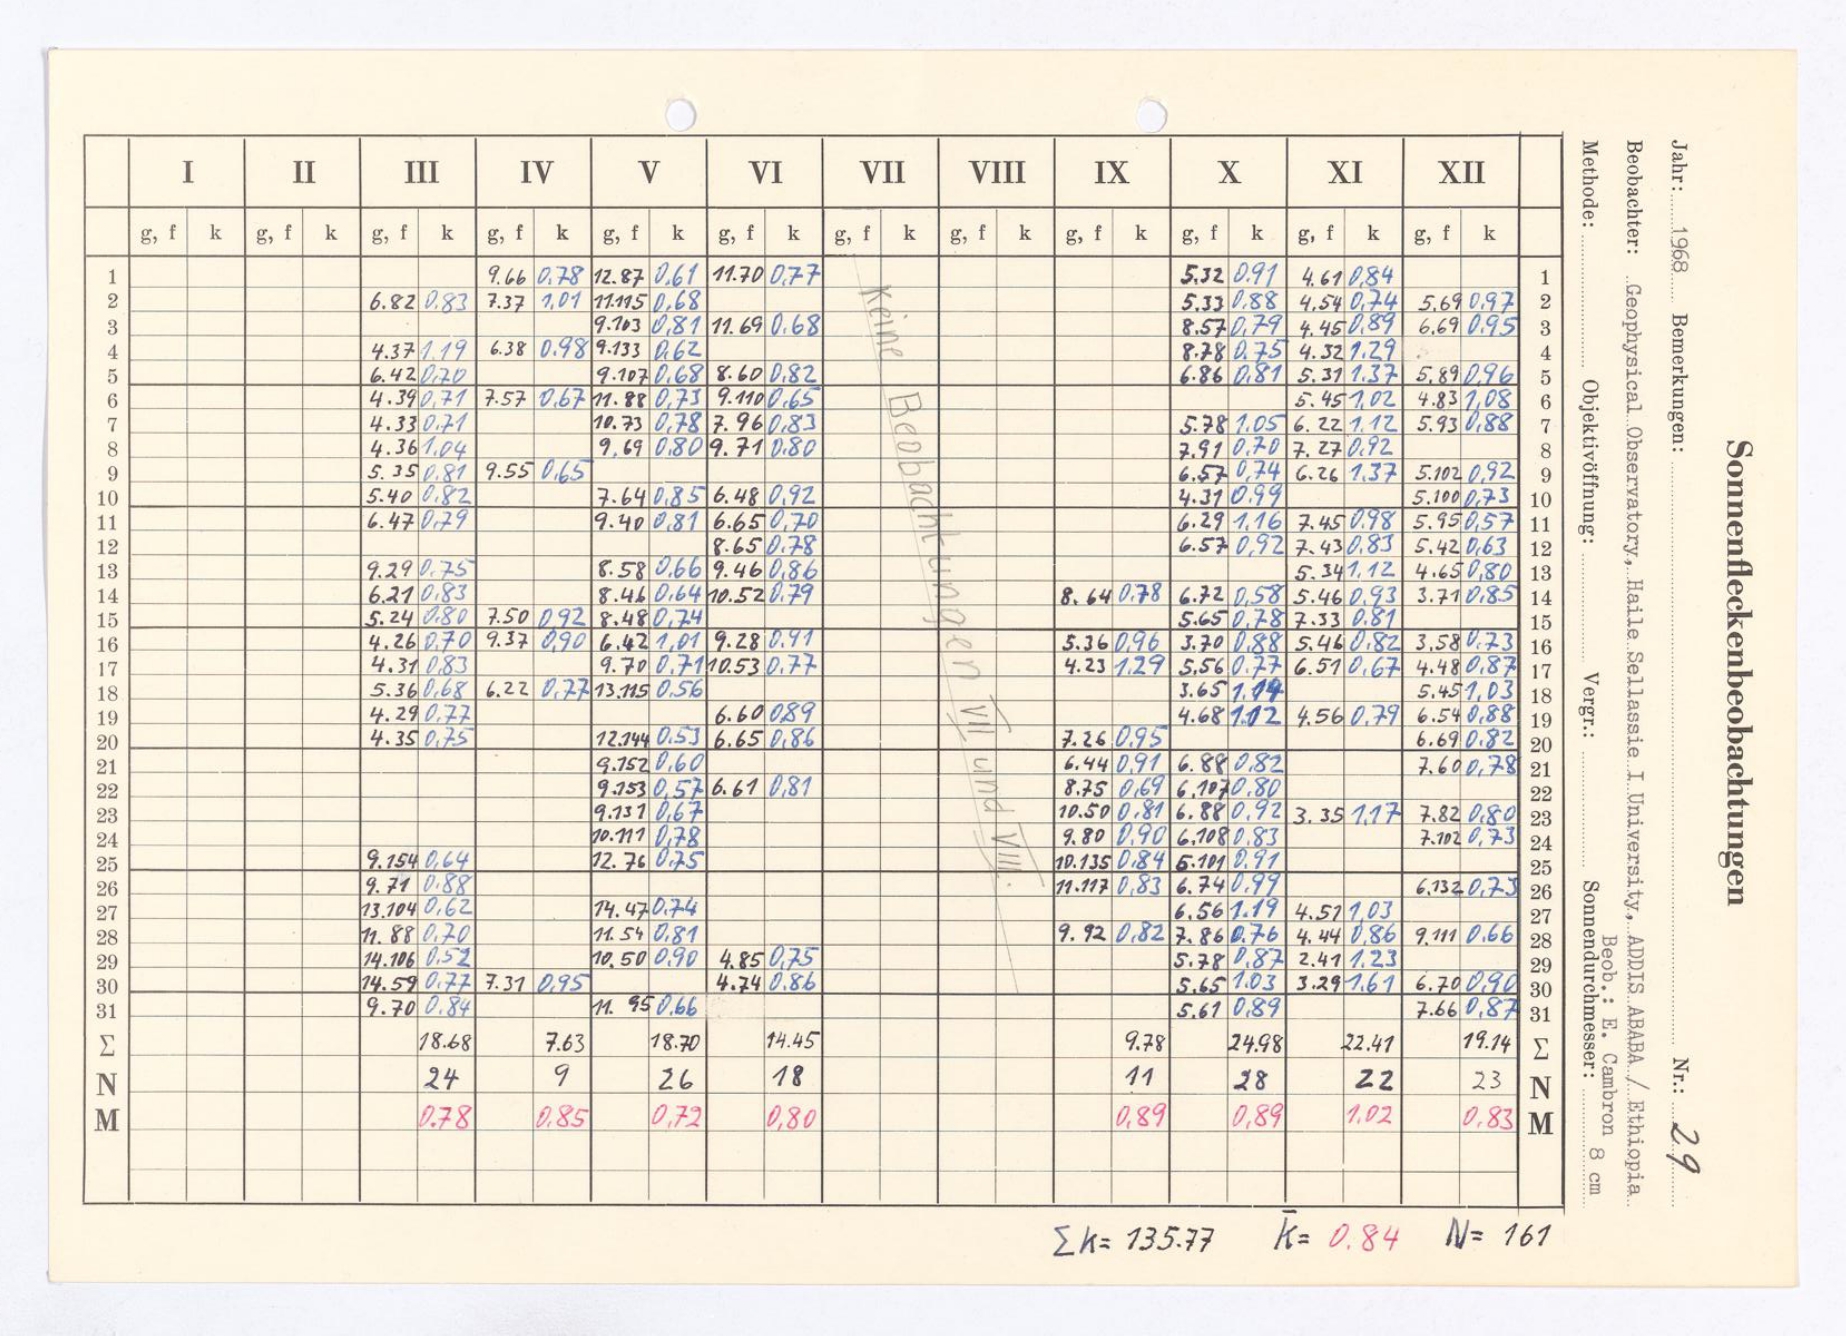 Sonnenfleckenbeobachtungen
Jahr: 1968 Bemerkungen: Nr.: 29
Beobachter: Geophysical Observatory, Haile Sellassie I University, ADDIS ABABA / Ethiopia
Beob.: E. Cambron
Methode: Objektivöffnung: Vergr.: Sonnendurchmesser: 8 cm
I II III IV V VI VII VIII IX X XI XII
g, f k g, f k g, f k g, f k g, f k g, f k g, f k g, f k g, f k g, f k g, f k g, f k
1 9.66 0,78 12.87 0,61 11.70 0,77 5.32 0,91 4.61 0,84 1
2 6.82 0,83 7.37 1,01 11.115 0,68 5.33 0,88 4.54 0,74 5.69 0,97 2
3 9.103 0,81 11.69 0,68 8.57 0,79 4.45 0,89 6.69 0,95 3
4 4.37 1,19 6.38 0,98 9.133 0,62 8.78 0,75 4.32 1,29 4
5 6.42 0,70 9.107 0,68 8.60 0,82 6.86 0,81 5.31 1,37 5.89 0,96 5
6 4.39 0,71 7.57 0,67 11.88 0,73 9.110 0,65 5.45 1,02 4.83 1,08 6
7 4.33 0,71 10.73 0,78 7.96 0,83 5.78 1,05 6.22 1,12 5.93 0,88 7
8 4.36 1,04 9.69 0,80 9.71 0,80 7.91 0,70 7.27 0,92 8
9 5.35 0,81 9.55 0,65 6.57 0,74 6.26 1,37 5.102 0,92 9
10 5.40 0,82 7.64 0,85 6.48 0,92 4.31 0,99 5.100 0,73 10
11 6.47 0,79 9.40 0,81 6.65 0,70 6.29 1,16 7.45 0,98 5.95 0,57 11
12 8.65 0,78 6.57 0,92 7.43 0,83 5.42 0,63 12
13 9.29 0,75 8.58 0,66 9.46 0,86 5.34 1,12 4.65 0,80 13
14 6.21 0,83 8.46 0,64 10.52 0,79 8.64 0,78 6.72 0,58 5.46 0,93 3.71 0,85 14
15 5.24 0,80 7.50 0,92 8.48 0,74 5.65 0,78 7.33 0,81 15
16 4.26 0,70 9.37 0,90 6.42 1,01 9.28 0,91 5.36 0,96 3.70 0,88 5.46 0,82 3.58 0,73 16
17 4.31 0,83 9.70 0,71 10.53 0,77 4.23 1,29 5.56 0,77 6.51 0,67 4.48 0,87 17
18 5.36 0,68 6.22 0,77 13.115 0,56 3.65 1,14 5.45 1,03 18
19 4.29 0,77 6.60 0,89 4.68 1,12 4.56 0,79 6.54 0,88 19
20 4.35 0,75 12.144 0,53 6.65 0,86 7.26 0,95 6.69 0,82 20
21 9.152 0,60 6.44 0,91 6.88 0,82 7.60 0,78 21
22 9.153 0,57 6.61 0,81 8.75 0,69 6.107 0,80 22
23 9.131 0,67 10.50 0,81 6.88 0,92 3.35 1,17 7.82 0,80 23
24 10.111 0,78 9.80 0,90 6.108 0,83 7.102 0,73 24
25 9.154 0,64 12.76 0,75 10.135 0,84 5.101 0,91 25
26 9.71 0,88 11.117 0,83 6.74 0,99 6.132 0,73 26
27 13.104 0,62 14.47 0,74 6.56 1,19 4.51 1,03 27
28 11.88 0,70 11.54 0,81 9.92 0,82 7.86 0,76 4.44 0,86 9.111 0,66 28
29 14.106 0,52 10.50 0,90 4.85 0,75 5.78 0,87 2.41 1,23 29
30 14.59 0,77 7.31 0,95 4.74 0,86 5.65 1,03 3.29 1,61 6.70 0,90 30
31 9.70 0,84 11.95 0,66 5.61 0,89 7.66 0,87 31
Σ 18.68 7.63 18.70 14.45 9.78 24.98 22.41 19.14 Σ
N 24 9 26 18 11 28 22 23 N
M 0.78 0,85 0,72 0,80 0,89 0,89 1.02 0,83 M
Keine Beobachtungen VII und VIII.
Σk= 135.77 k̄= 0.84 N= 161